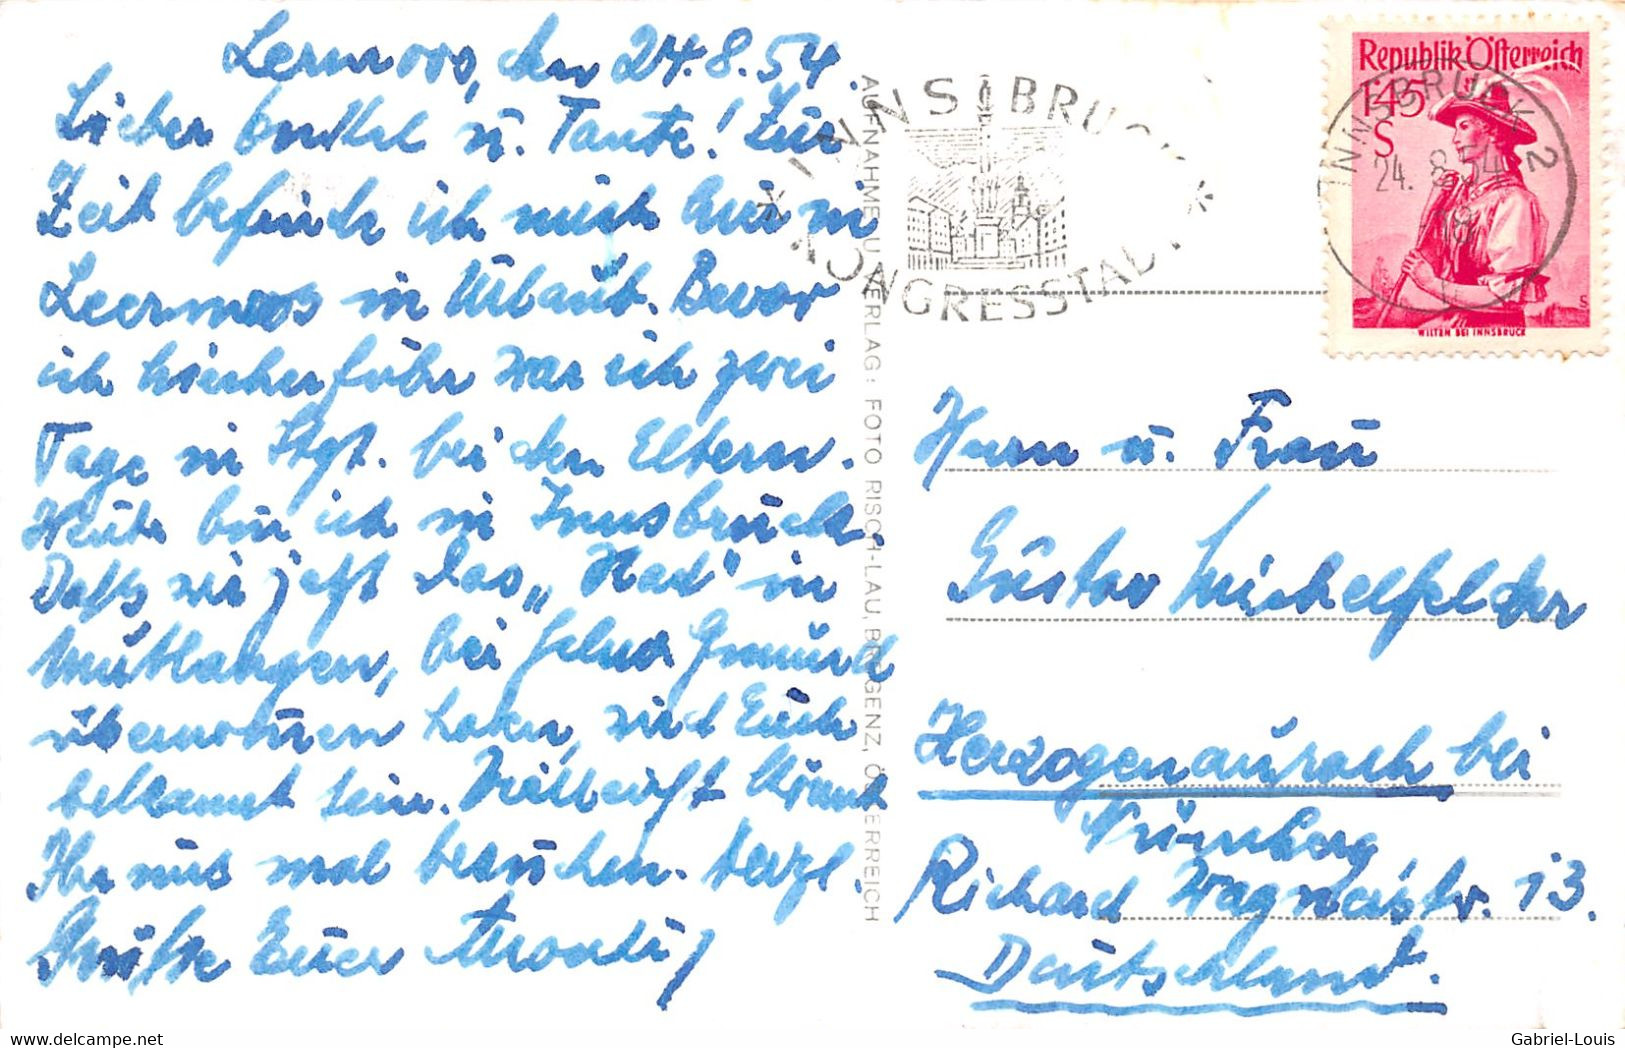 Lermoos, den 24.8.54.
Lieber Onkel u. Tante! Zur
Zeit befinde ich mich hier in
Leermoos in Urlaub. Bevor
ich hierherfuhr war ich zwei
Tage in Stgt. bei den Eltern.
Heute bin ich in Innsbruck.
Daß wir jetzt das „Rad" in
Mutlangen, bei Schwä. Gmünd
übernommen haben, wird Euch
bekannt sein. Vielleicht könnt
Ihr uns mal besuchen. Herzl.
Grüße Euer
AUFNAHME U. VERLAG: FOTO RISCH-LAU, BREGENZ, ÖSTERREICH
* INNSBRUCK *
KONGRESSTADT
Republik Österreich
1·45
S
INNSBRUCK 2
24. 8.54
18
WILTEN BEI INNSBRUCK
S
Herrn u. Frau
Gustav Michelfelder
Herzogenaurach bei
Nürnberg
Richard Wagnerstr. 13.
Deutschland.
delcampe.net
Gabriel-Louis